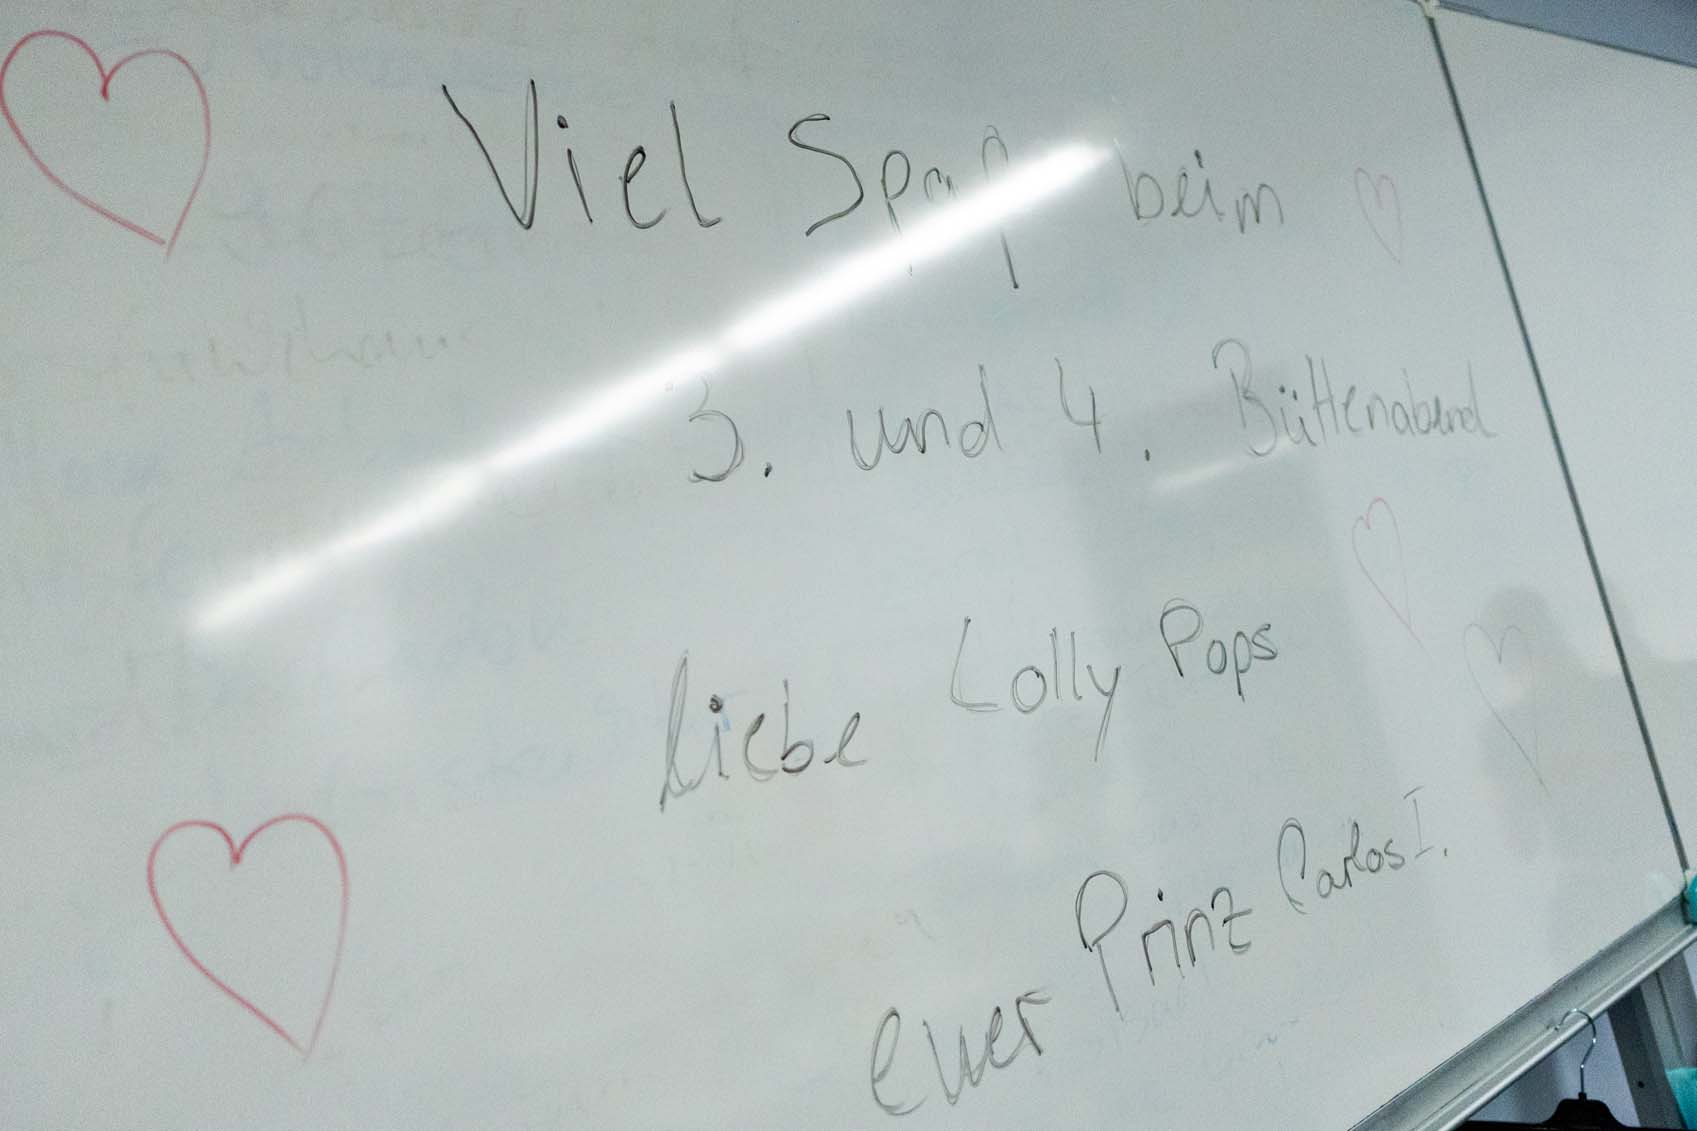 Viel Spaß beim
3. und 4. Büttenabend
liebe Lolly Pops
euer Prinz Carlos I.